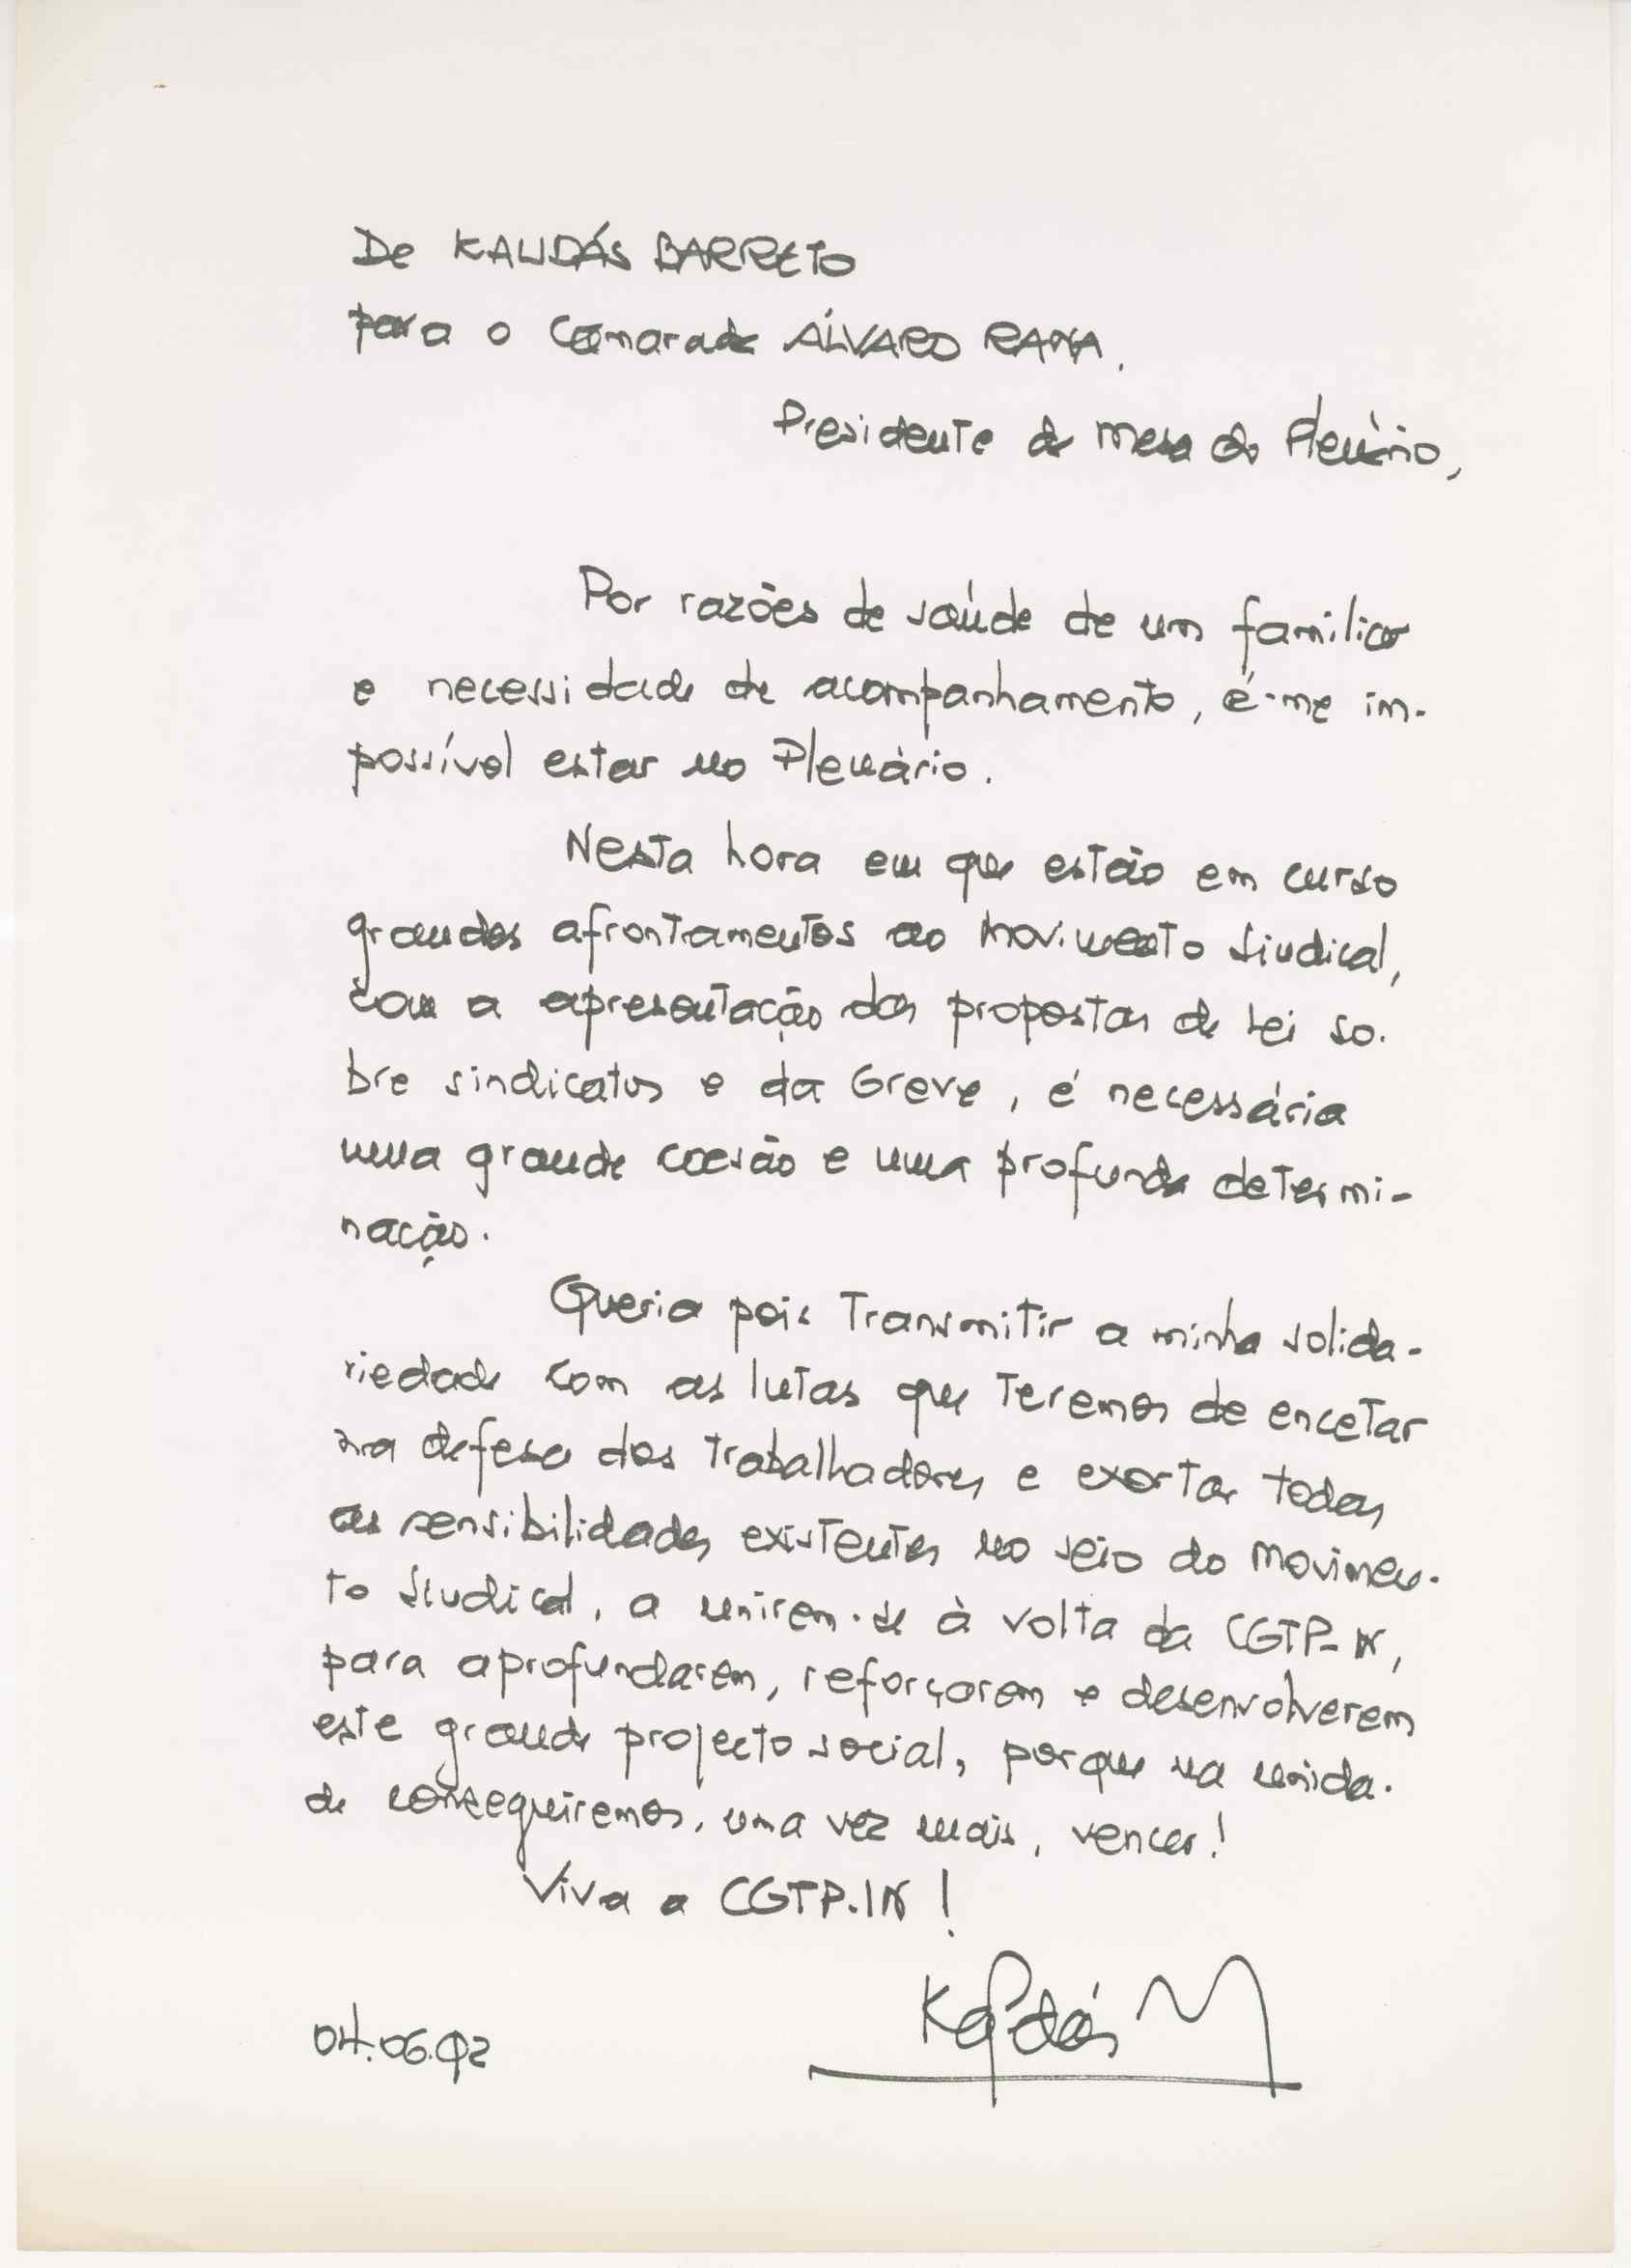 De KALIDÁS BARRETO
para o Camarada ÁLVARO RANA,
Presidente da Mesa do Plenário,
Por razões de saúde de um familiar
e necessidade de acompanhamento, é-me im-
possível estar no Plenário.
Nesta hora em que estão em curso
grandes afrontamentos ao Movimento Sindical,
com a apresentação das propostas de Lei so-
bre sindicatos e da Greve, é necessária
uma grande coesão e uma profunda determi-
nação.
Queria pois Transmitir a minha solida-
riedade com as lutas que Teremos de encetar
na defesa dos Trabalhadores e exortar todas
as sensibilidades existentes no seio do Movimen-
to Sindical, a unirem-se à volta da CGTP-IN,
para aprofundarem, reforçarem e desenvolverem
este grande projecto social, porque na unida-
de conseguiremos, uma vez mais, vencer!
Viva a CGTP-IN!
Kalidás
04.06.92